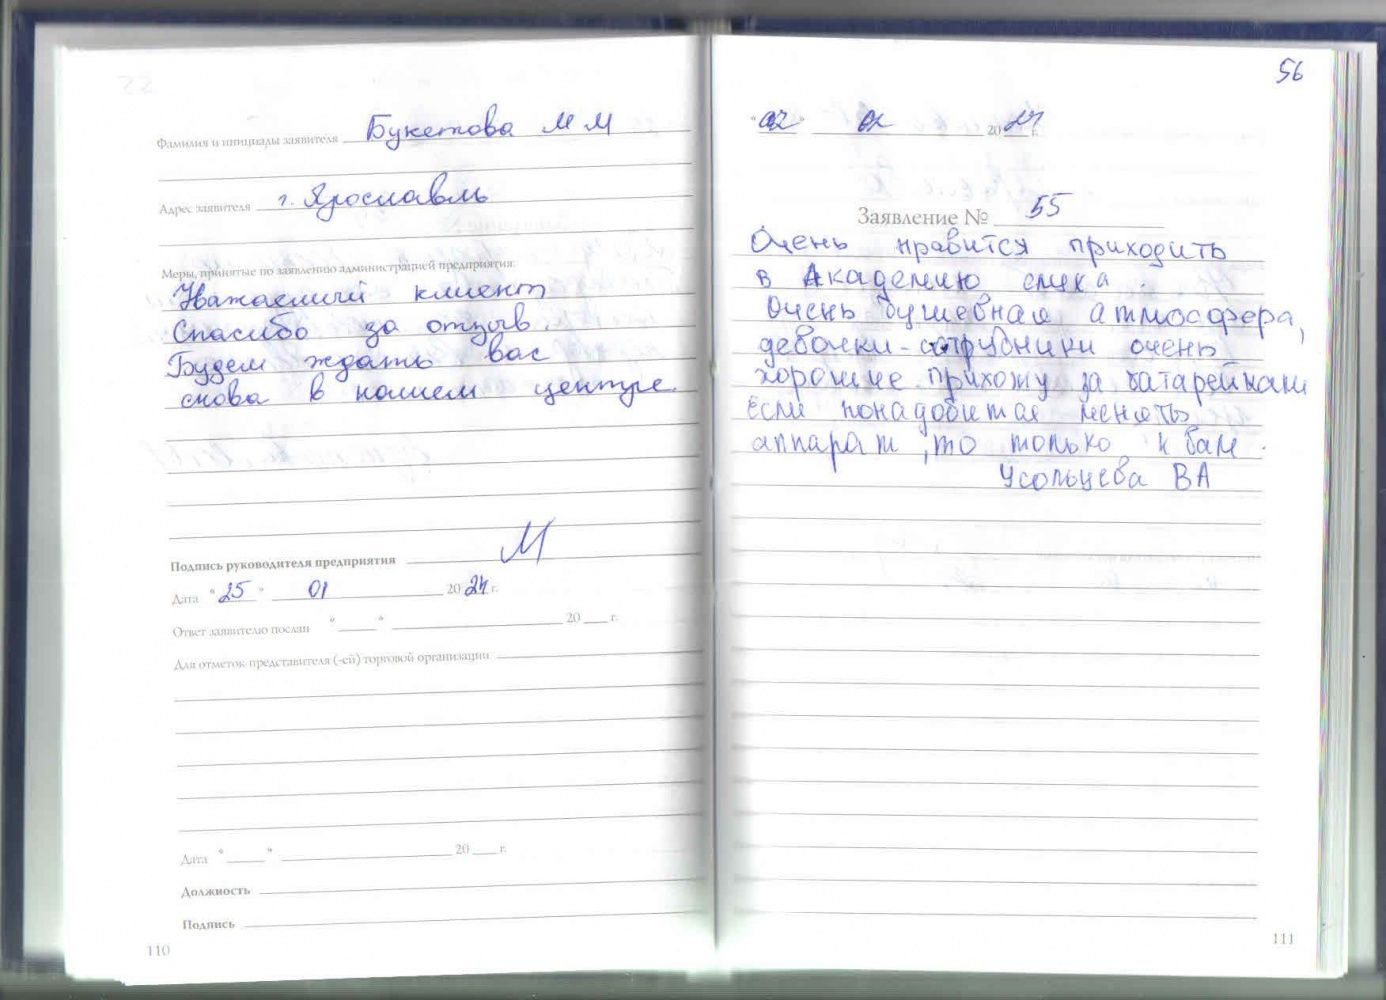 Фамилия и инициалы заявителя Букетова М М
Адрес заявителя г. Ярославль
Меры, принятые по заявлению администрацией предприятия:
Уважаемый клиент
Спасибо за отзыв.
Будем ждать вас
снова в нашем центре.
Подпись руководителя предприятия
Дата "25" 01 2024 г.
Ответ заявителю послан "___" ___ 20 ___ г.
Для отметок представителя (-ей) торговой организации
Дата "___" ___ 20 ___ г.
Должность
Подпись
110
56
"02" 2024 г.
Заявление № 55
Очень нравится приходить
в Академию слуха.
Очень душевная атмосфера,
девочки-сотрудники очень
хорошие прихожу за батарейками
если понадобится менять
аппарат, то только к вам.
Усольцева ВА
111